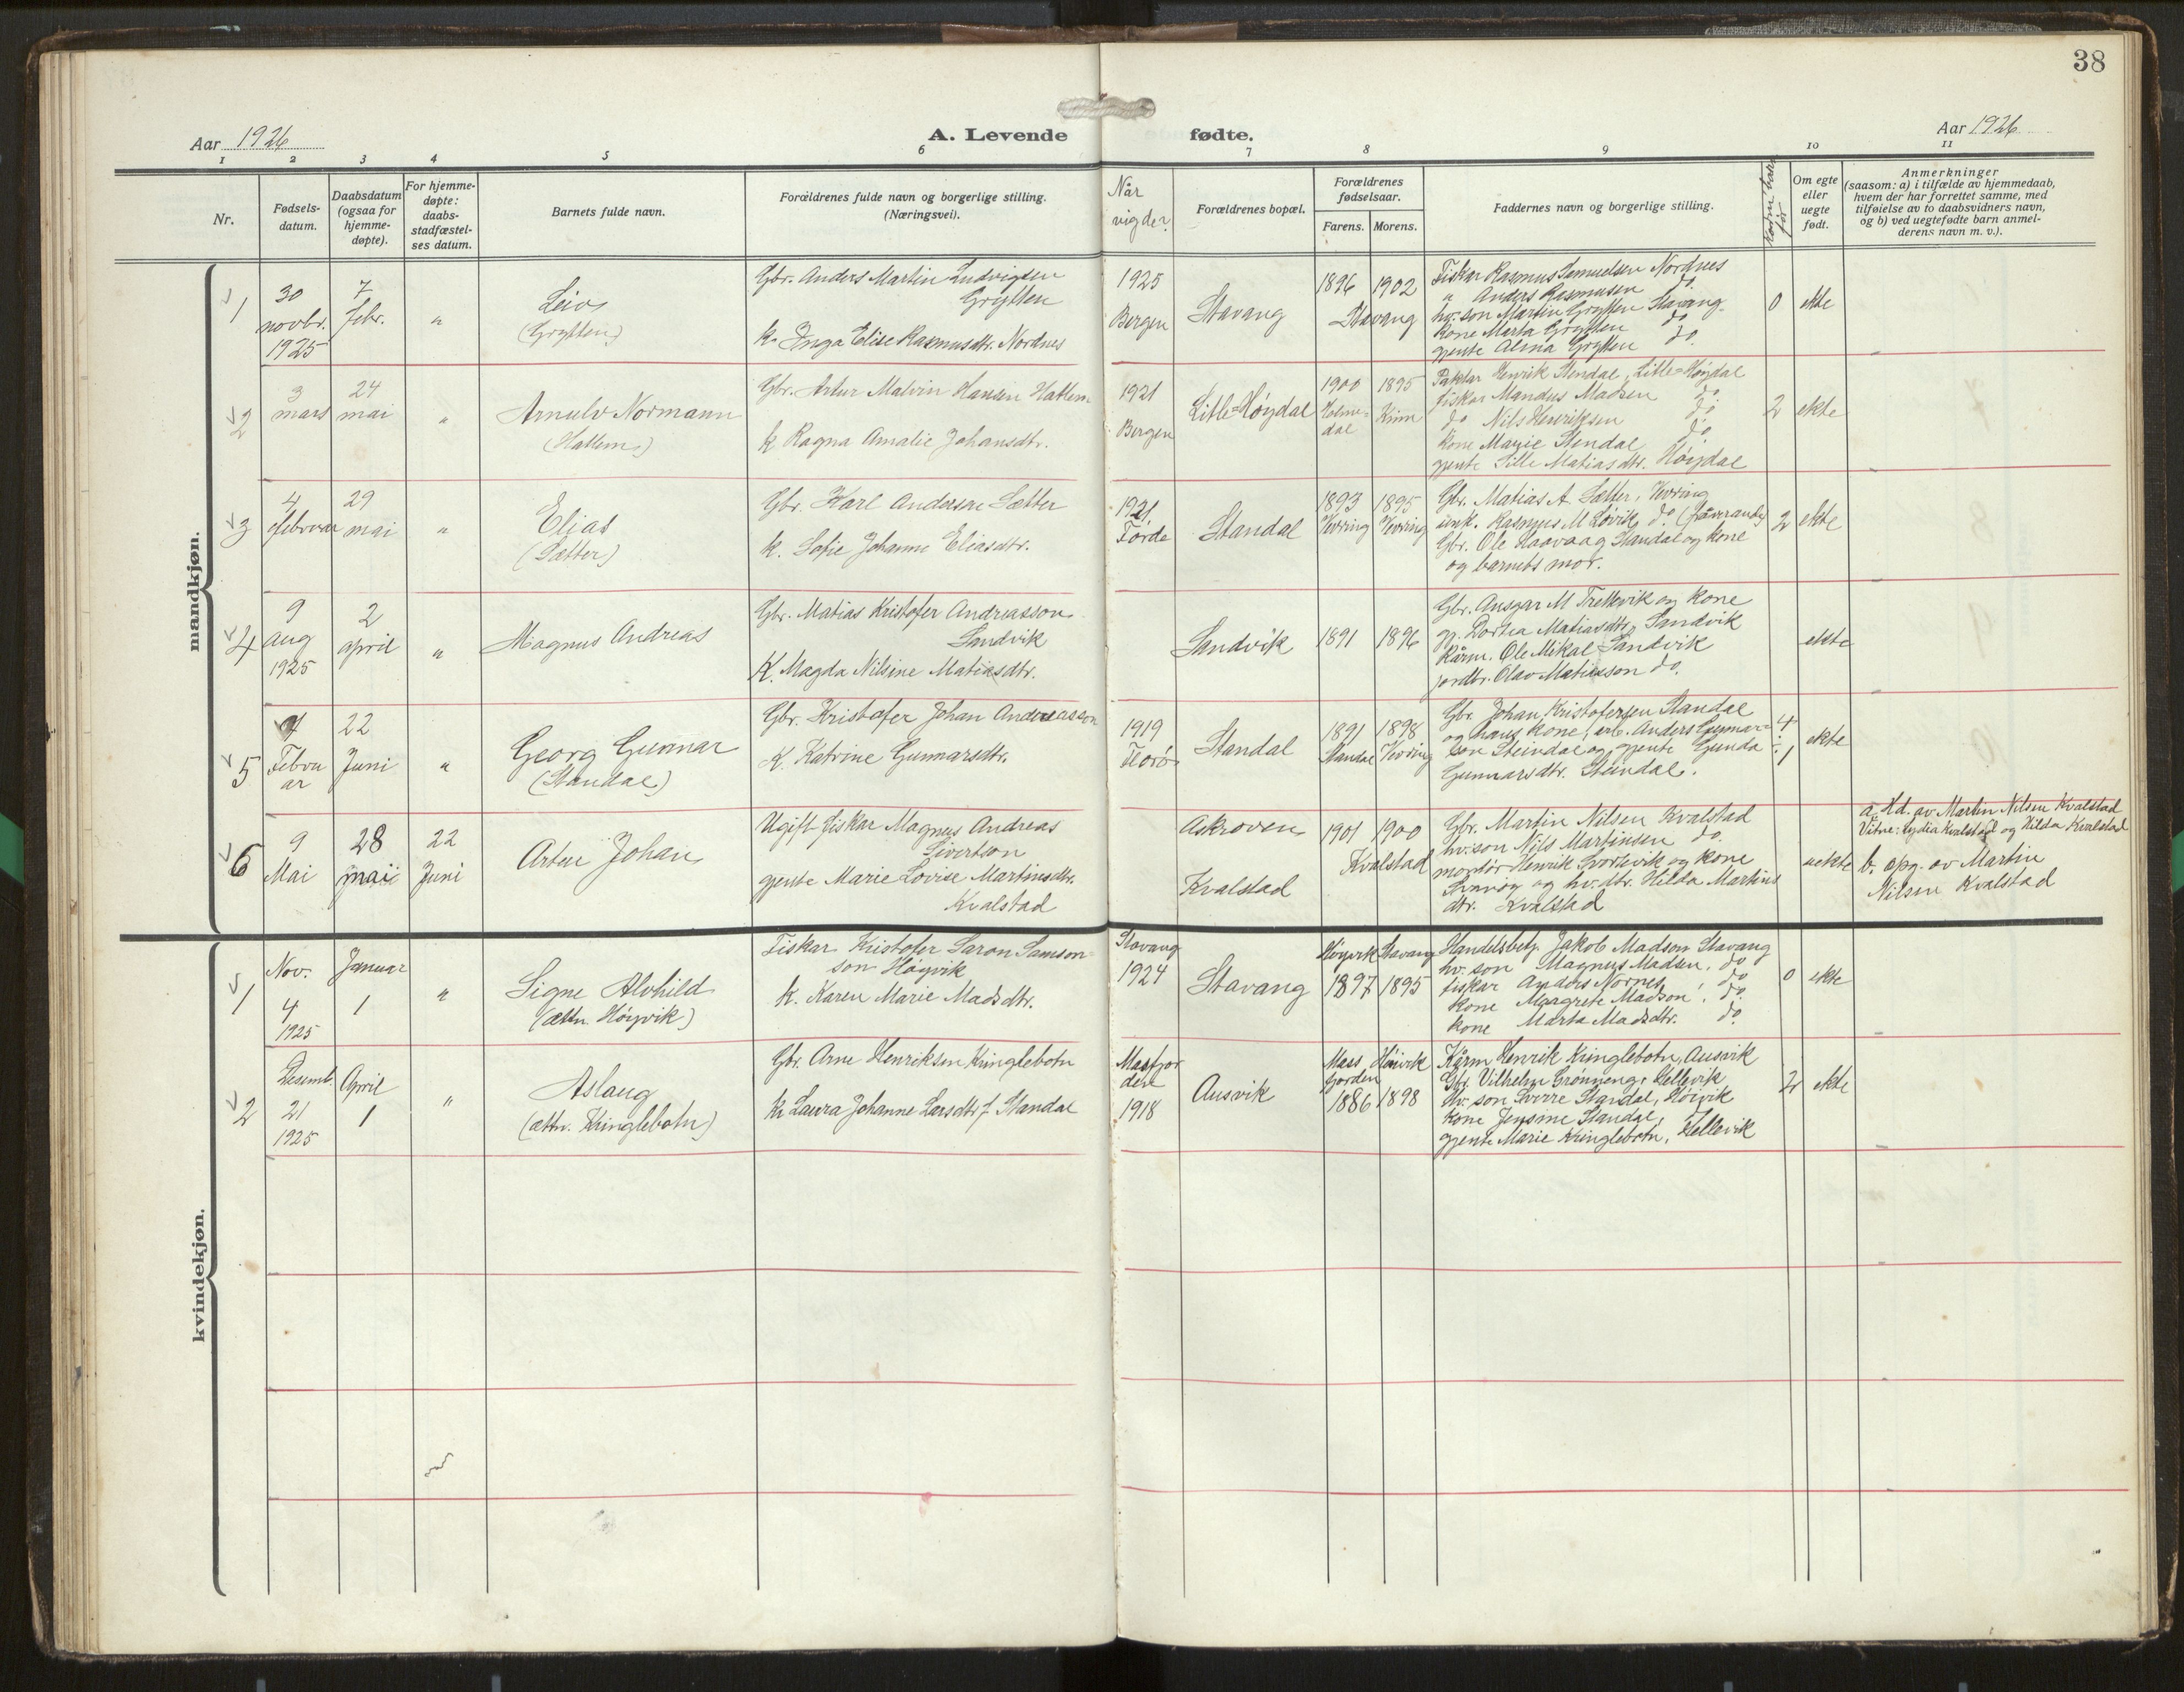 38
Aar 1926
A. Levende fødte.
Aar 1926
1 2 3 4 5 6 7 8 9 10 11
Nr.
Fødsels-
datum.
Daabsdatum
(ogsaa for
hjemme-
døpte).
For hjemme-
døpte:
daabs-
stadfæstel-
ses datum.
Barnets fulde navn.
Forældrenes fulde navn og borgerlige stilling.
(Næringsvei).
Når
vigde?
Forældrenes bopæl.
Forældrenes
fødselsaar.
Farens. Morens.
Faddernes navn og borgerlige stilling.
Kordm barn
før
Om egte
eller
uegte
født.
Anmerkninger
(saasom: a) i tilfælde av hjemmedaab,
hvem der har forrettet samme, med
tilføielse av to daabsvidners navn,
og b) ved uegtefødte barn anmel-
derens navn m. v.).
mandkjøn.
1
30
novbr.
1925
7
febr.
"
Leiv
(Grytten)
Gbr. Anders Martin Ludvigsen
Grytten
k. Inga Elise Rasmusdtr. Nordnes
1925
Bergen
Stavang
1896 1902
Stavang
Fiskar Rasmus Samuelsen Nordnes
" Anders Rasmusen do
hv. son Martin Grytten Stavang
kone Marta Grytten do
gjente Alma Grytten do.
0
ekte
2
3
mars
24
mai
"
Arnulv Normann
(Hatlem)
Gbr. Artur Malvin Hansen Hatlem
k. Ragna Amalie Johansdtr.
1921
Bergen
Litle-Høydal
1900 1895
Holme-
dal
Kinn
Paktar Henrik Stendal, Litle-Høydal
fiskar Mandus Madsen do
do Nils Henriksen do
kone Marie Stendal do
gjente Sille Matiasdtr. Høydal
2
ekte
3
4
februar
29
mai
"
Elias
(Sætter)
Gbr. Karl Andersen Sætter
k. Sofie Johanne Eliasdtr.
1921
Førde
Standal
1893 1895
Vevring Vevring
Gbr. Matias A. Sætter, Vevring
unk. Rasmus M Løvik do (fråverande)
Gbr. Ole Haavaag Standal og kone
og barnets mor.
2
ekte
4
9
aug
1925
2
april
"
Magnus Andreas
Gbr. Matias Kristofer Andreasson
Sandvik
K. Magda Nilsine Matiasdtr.
Sandvik
1891 1896
Gbr. Ansgar M Trettevik og kone
gj. Dortea Matiasdtr. Sandvik
Kårm. Ole Mikal Sandvik
jordbr. Olav Matiasson do.
ekte
5
4
Febru
ar
22
Juni
"
Georg Gunnar
(Standal)
Gbr. Kristofer Johan Andreasson
K. Katrine Gunnarsdtr.
1919
Florø
Standal
1891 1898
Standal Vevring
Gbr. Johan Kristofersen Standal
og hans kone, arb. Anders Gunnar-
son Steindal og gjente Gunda
Gunnarsdtr. Steindal.
4
÷1
ekte
6
9
Mai
28
mai
22
Juni
Artur Johan
Ugift fiskar Magnus Andreas
Sivertson
gjente Marie Lovise Martinsdtr.
Kvalstad
Askroven
Kvalstad
1901 1900
Kvalstad
Gbr. Martin Nilsen Kvalstad
hv. son Nils Martinsen do
Henrik og kone
og hv. dtr. Hilda Martins
dtr. Kvalstad
uekte
a. Hd. av Martin Nilsen Kvalstad
Vitne: Lydia Kvalstad og Hilda Kvalstad
b. opg. av Martin
Nilsen Kvalstad
kvindekjøn.
1
Nov.
4
1925
Januar
1
"
Signe Alvhild
(ættn. Høyvik)
Fiskar Kristofer Saron Samson-
son Høyvik
k. Karen Marie Madsdtr.
Stavang
1924
Stavang
Høyvik Stavang
1897 1895
Handelsbetj. Jakob Madson Stavang
hv. son Magnus Madsen, do
fiskar Anders Nornes, do
kone Margrete Madson, do
kone Marta Madsdtr. do
0
ekte
2
Desemb.
21
1925
April
1
"
Aslaug
(ættn. Kringlebotn)
Gbr. Arne Henriksen Kringlebotn
k. Laura Johanne Larsdtr. f. Standal
Masfjor
den
1918
Ausvik
Mass
fjorden
1886
Høivik
1898
Kårm. Henrik Kringlebotn, Ausvik
Gbr. Vilhelm Grønneng, Hellevik
hv. son Sverre Standal, Høivik
kone Jensine Standal,
gjente Marie Kringlebotn, Hellevik
2
ekte